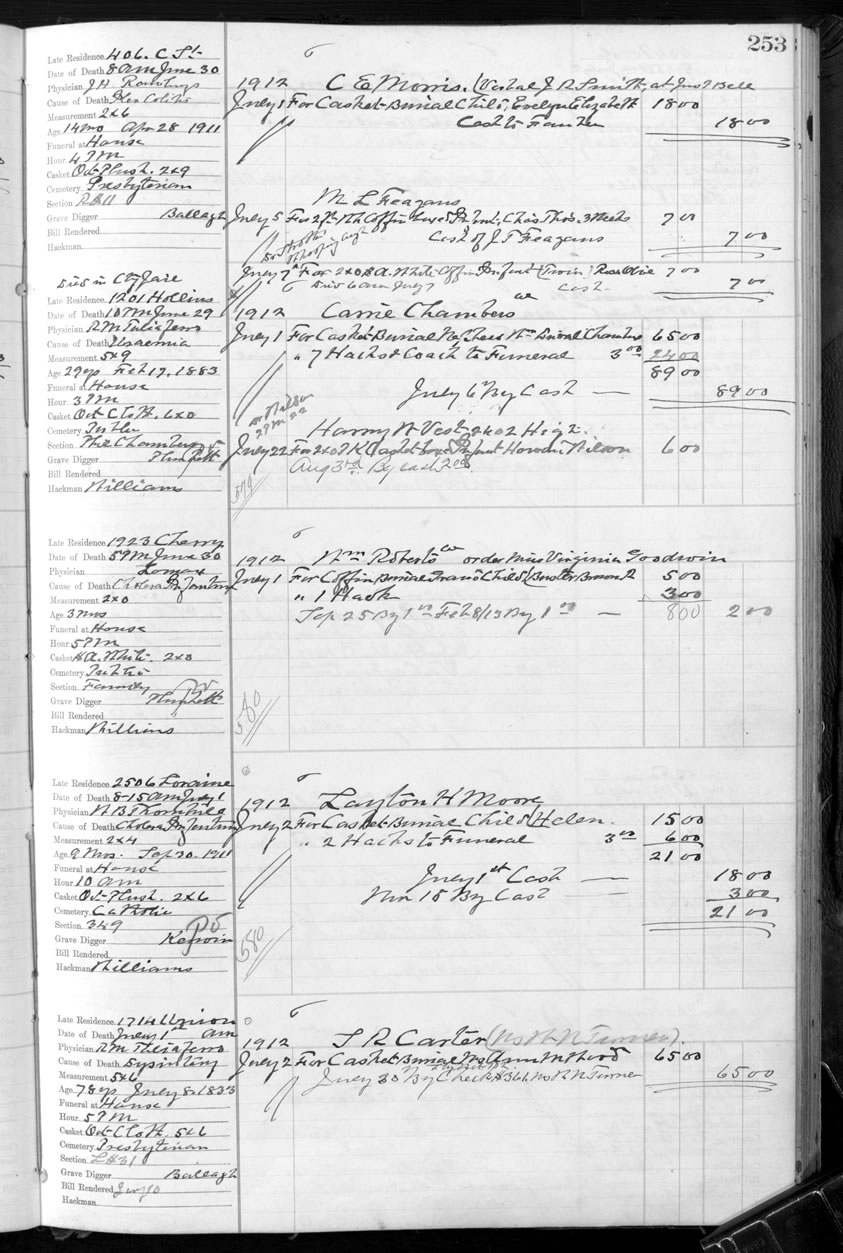 253
Late Residence 406. C St
Date of Death 8 am June 30
Physician J H Rawlings
Cause of Death Colitis
Measurement 2x6
Age 14 mo Apr 28 1911
Funeral at House
Hour 4 PM
Casket Oct Plush. 2x9
Cemetery Presbyterian
Section
Grave Digger Ballagh
Bill Rendered
Hackman
1912 C E Morris. (Vestal J R Smith, at
July 1 For Casket Burial Child, Evelyn Elizabeth 18 00
Cash to 18 00
M L Feagans
July 5 For Coffin Infant, Chas Thos. 3 Weeks 7 00
Whooping Cough
Cash of J T Feagans 7 00
July 7 For 2x0 White Coffin Infant (Twin) Rosa Olive 7 00
Died 6 am July 7 Cash 7 00
Died in City Jail
Late Residence 1201 Hollins
Date of Death 10 PM June 29
Physician R M Taliaferro
Cause of Death Uraemia
Measurement 5x9
Age 29 ys Feb 17, 1883
Funeral at House
Hour 3 PM
Casket Oct Cloth. 6x0
Cemetery
Section Chambers
Grave Digger
Bill Rendered
Hackman Williams
1912 Carrie Chambers
July 1 For Casket Burial Wm Chambers 65 00
" 7 Hacks & Coach to Funeral 3 00 24 00
89 00
July 6 By Cash — 89 00
Dr Wilson
Harry W. Vest - 2402 High
July 22 For 2x0 Casket Infant Howard Wilson 6 00
Aug 3rd By cash 2 00
Late Residence 1923 Cherry
Date of Death 5 PM June 30
Physician Lomax
Cause of Death Cholera Infantum
Measurement 2x0
Age 3 mos
Funeral at House
Hour 5 PM
Casket White. 2x0
Cemetery
Section Family
Grave Digger
Bill Rendered
Hackman Williams
1912 Wm Roberts order Miss Virginia Goodwin
July 1 For Coffin Burial Grand Child 5 00
" 1 Hack 3 00
Sep 25 By 1 00 Feb 8/13 By 1 00 — 8 00 2 00
580
Late Residence 2506 Loraine
Date of Death 8-15 am July 1
Physician W B Thornhill
Cause of Death Cholera Infantum
Measurement 2x4
Age 9 Mos. Sep 30. 1911
Funeral at House
Hour 10 am
Casket Oct Plush. 2x6
Cemetery Catholic
Section 349
Grave Digger Kerwin
Bill Rendered
Hackman Williams
1912 Layton H Moore
July 2 For Casket Burial Child Helen. 15 00
" 2 Hacks to Funeral 3 00 6 00
21 00
July 1st Cash — 18 00
Nov 15 By Cash — 3 00
21 00
580
Late Residence 1714 Union
Date of Death July 1st am
Physician R M Taliaferro
Cause of Death Dysintery
Measurement 5x6
Age 78 ys July 8. 1833
Funeral at House
Hour 5 PM
Casket Oct Cloth. 5x6
Cemetery Presbyterian
Section L H 31
Grave Digger Ballagh
Bill Rendered
Hackman
1912 J R Carter (Mrs W. N Turner).
July 2 For Casket Burial Mrs Ann M Wood 65 00
July 30 By Check #366 Mrs R N Turner 65 00